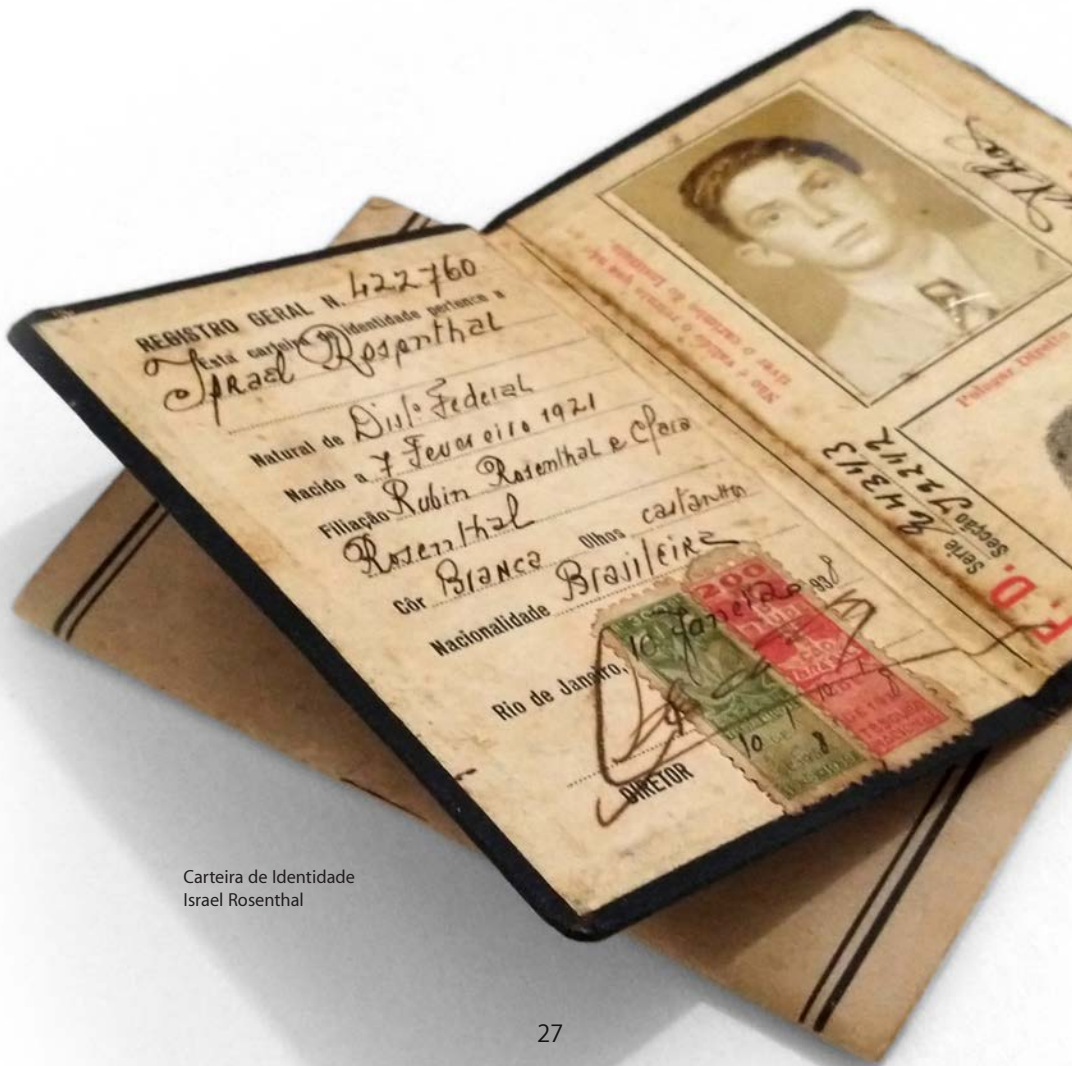 REGISTRO GERAL N. 422760
Esta carteira de identidade pertence a
Israel Rosenthal
Natural de Dist.º Federal
Nacido a 7 Fevereiro 1921
Filiação Rubin Rosenthal e Clara
Rosenthal
Côr Branca Olhos castanhos
Nacionalidade Brasileira
Rio de Janeiro, 10 Janeiro 938
DIRETOR
200
BRASIL
10 1 8
Não é valido
tiver o carimbo do Instituto
Polegar Direito
Serie E4343
Secção J2242
F. D.
Carteira de Identidade
Israel Rosenthal
27